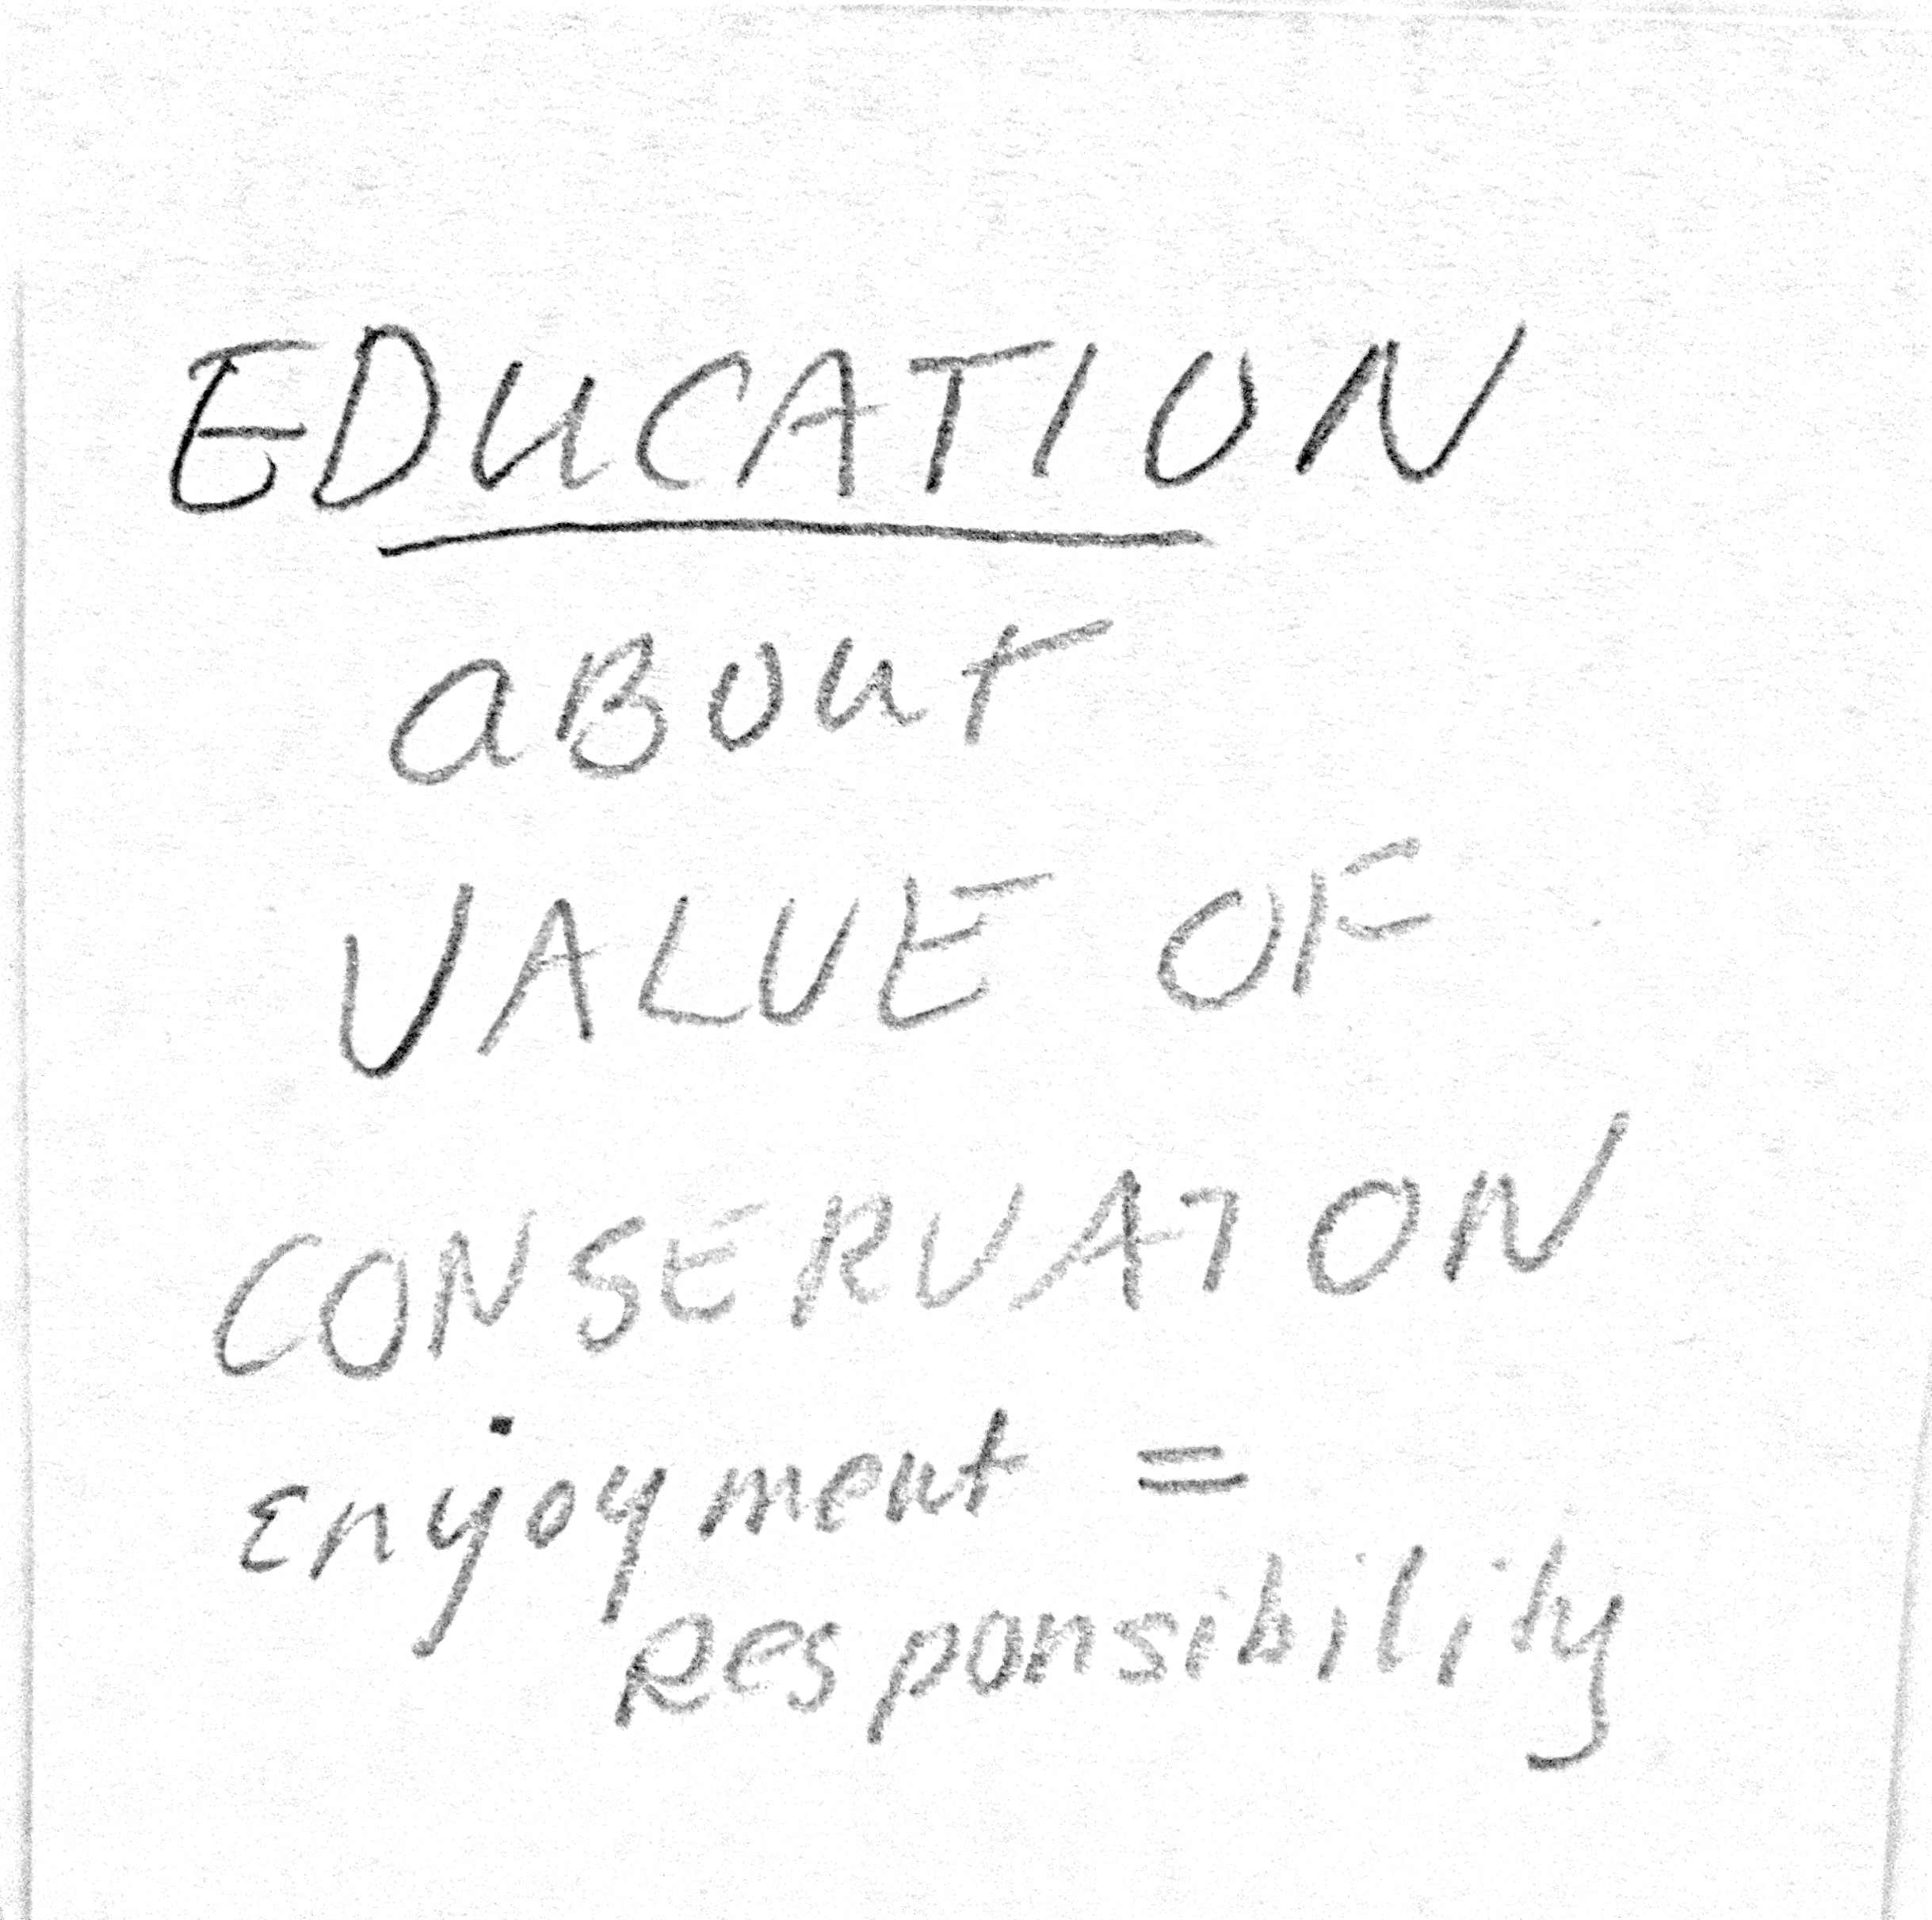 EDUCATION
aBOUT
VALUE OF
CONSERVATON
Enjoyment =
Responsibility